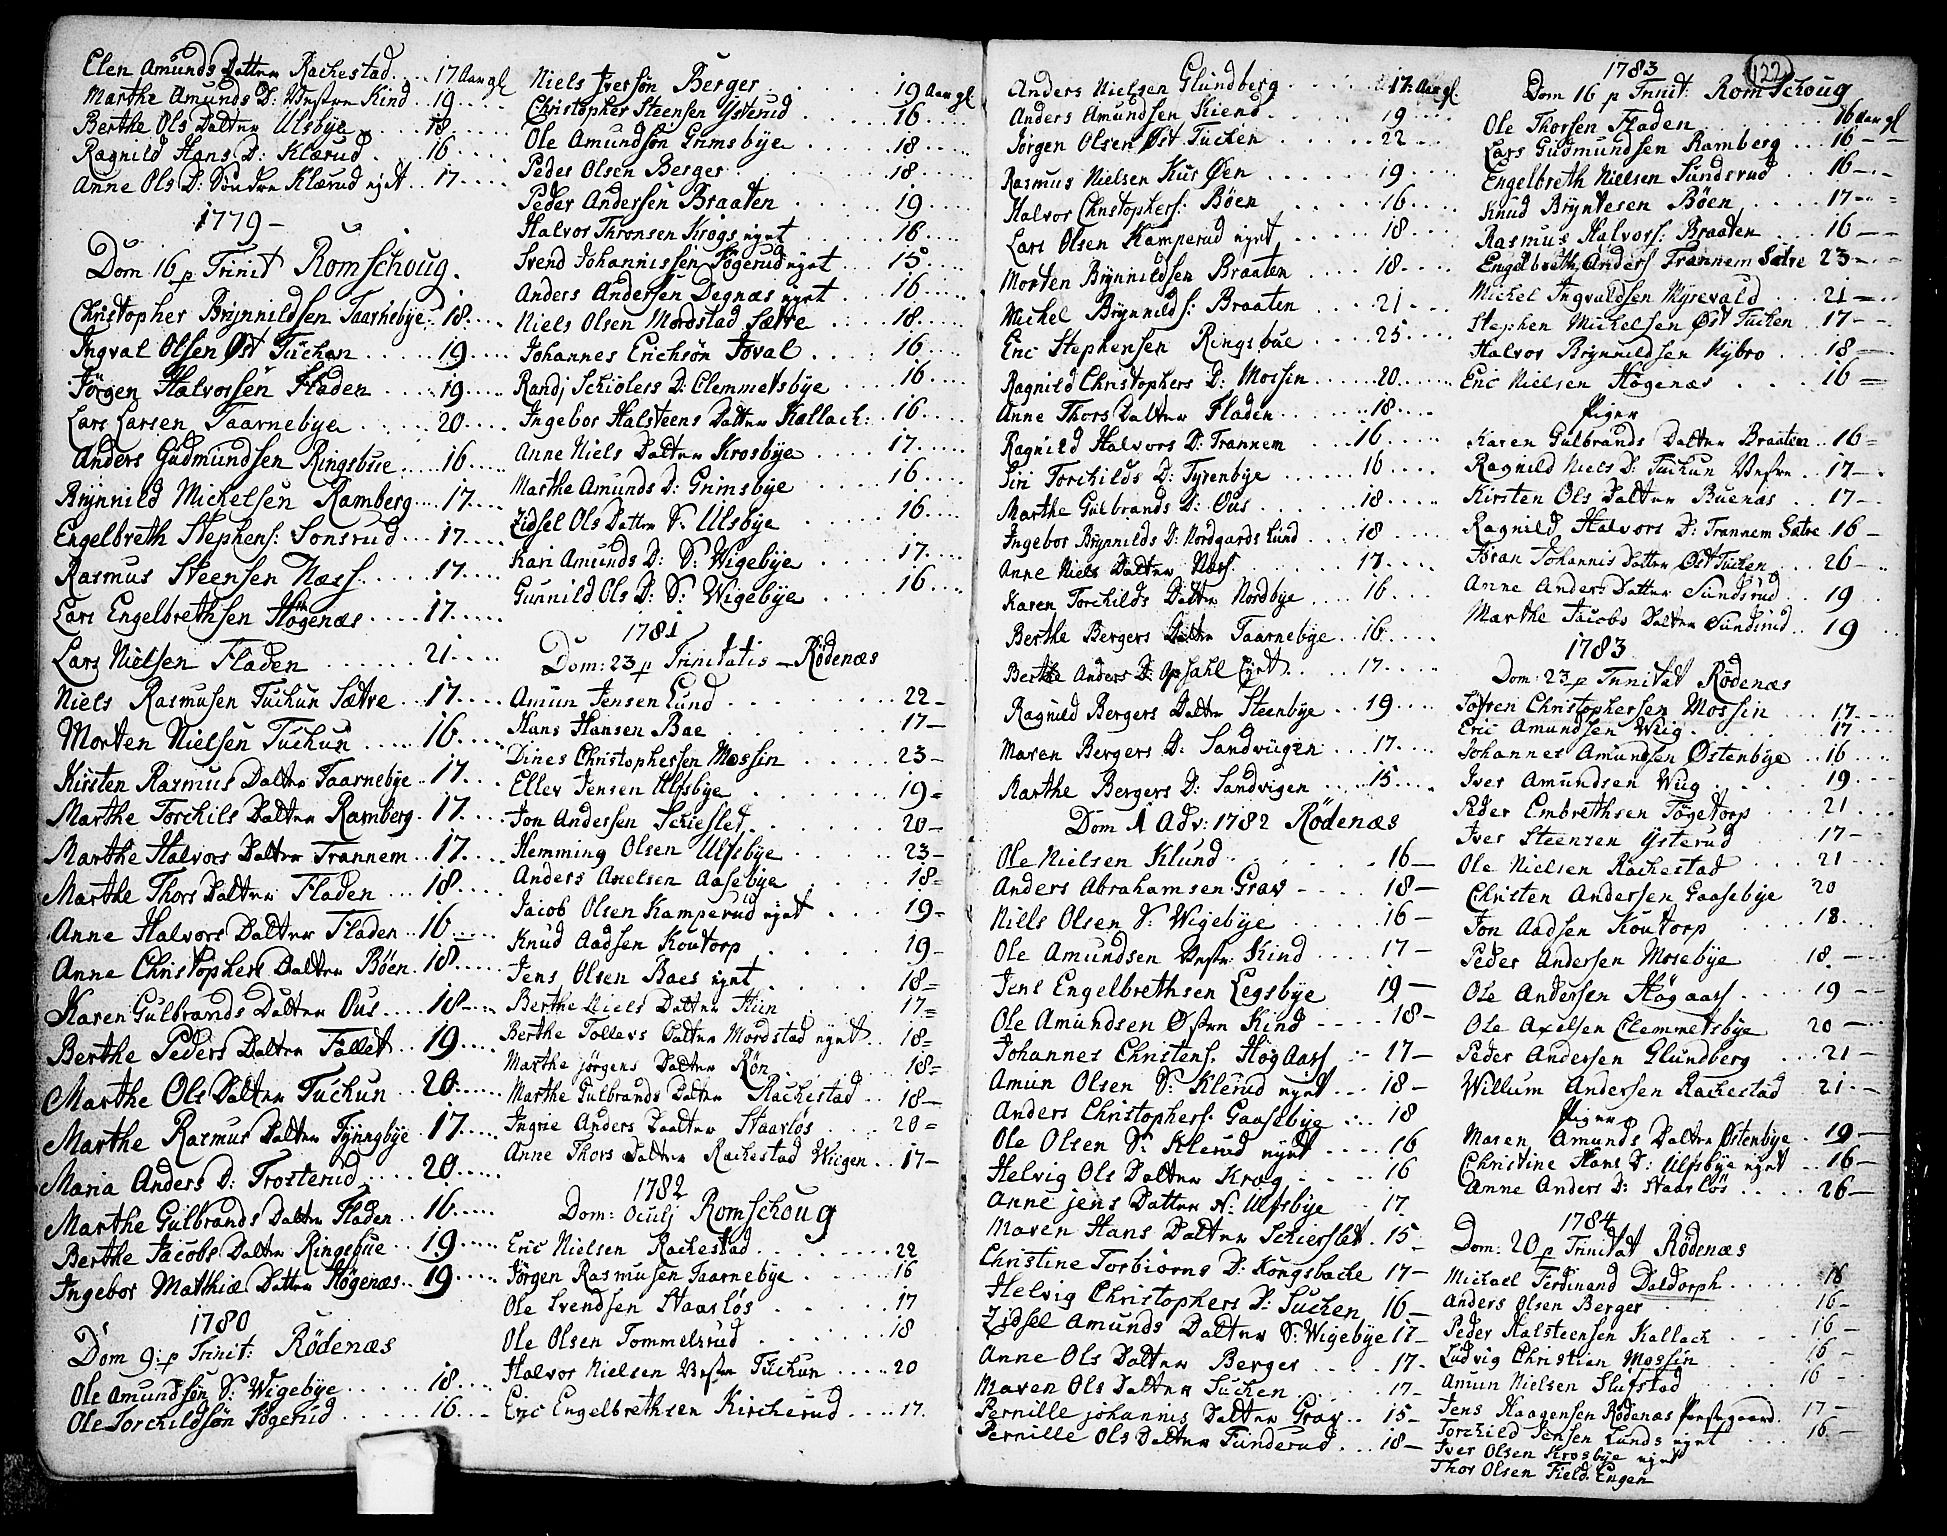 Elen Amunds Datter Rachestad . . . 17 Aar gl
Marthe Amunds D: Vestre Kind . . 19 . . .
Berthe Ols Datter Ulsbye . . . 18 . . .
Ragnild Hans D: Klærud . . 16 . . .
Anne Ols D: Söndre Klærud eynt . . 17 . . .
1779 -
Dom 16 p Trinit Romschoug.
Christopher Brynnildsen Taarnebye . 18 . . .
Ingval Olsen Øst Tuchen . . . 19 . . .
Jörgen Halvorsen Fladen . . . 19 . . .
Lars Larsen Taarnebye . . . 20 . . .
Anders Gudmundsen Ringsbue . . . 16 . . .
Brynnild Michelsen Ramberg . . . 17 . . .
Engelbreth Stephens: Sonsrud . . 17 . . .
Rasmus Steensen Næss . . . 17 . . .
Lars Engelbrethsen Högenæs . . . 17 . . .
Lars Nielsen Fladen . . . 21 . . .
Niels Rasmusen Tuchun Sætre . . 17 . . .
Morten Nielsen Tuchun . . . 16 . . .
Kirsten Rasmus Datter Taarnebye . . 17 . . .
Marthe Torchils Datter Ramberg . 17 . . .
Marthe Halvors Datter Trannem . . 17 . . .
Marthe Thors Datter Fladen . . . 18 . . .
Anne Halvors Datter Fladen . . 16 . . .
Anne Christophers Datter Böen . 18 . . .
Karen Gulbrands Datter Ous . . . 18 . . .
Berthe Peders Datter Follet . . 19 . . .
Marthe Ols Datter Tuchun . . 20 . . .
Marthe Rasmus Datter Tynngbye . 17 . . .
Maria Anders D: Trosterud . . . 20 . . .
Marthe Gulbrands Datter Fladen . . 16 . . .
Berthe Jacobs Datter Ringsbue . . 19 . . .
Ingebor Matthiæ Datter Högenæs . . 19 . . .
1780
Dom 9: p Trinit: Rödenæs
Ole Amundsön S: Wigebye . . . 18 . . .
Ole Torchildsön Högerud . . . 16 . . .
Niels Iversön Berger . . . 19 Aar gl
Christopher Steensen Ysterud . . . 16 . . .
Ole Amundsön Grimsbye . . . 18 . . .
Peder Olsen Berger . . . 18 . . .
Peder Andersen Braaten . . . 19 . . .
Halvor Thronsen Krogs eynt . . . 16 . . .
Svend Johannissen Högerud eynt . . 15 . . .
Anders Andersen Degnæs eynt . . 16 . . .
Niels Olsen Mordstad Sætre . . . 18 . . .
Johannes Erichsön Joval . . . 16 . . .
Randj Schiölers D: Clemmetsbye . . 16 . . .
Ingebor Halsteens Datter Kallach: . 16 . . .
Anne Niels Datter Krosbye . . . 17 . . .
Marthe Amunds D: Grimsbye . . . 16 . . .
Zidsel Ols Datter S: Ulsbye . . . 16 . . .
Kari Amunds D: S: Wigebye . . . 17 . . .
Gunnild Ols D: S: Wigebye . . . 16 . . .
1781
Dom: 23 p Trinitatis - Rödenæs
Amun Jensen Lund . . . 22 -
Hans Hansen Bae . . . 17 -
Dines Christophersen Mossin . . . 23 -
Eller Jensen Ulfsbye . . . 19 =
Jon Andersen Schieslet . . . 20 -
Hemming Olsen Ulfsbye . . . 23 -
Anders Axelsen Aasebye . . . 18 =
Jacob Olsen Kamperud eynt . . . 19 =
Knud Aadsen Koutorp . . . 19 -
Jens Olsen Baes eynt . . . 18 =
Berthe Niels Datter Hien . . . 17 =
Berthe Tollevs Datter Mordstad eynt . . 18 =
Marthe jörgens Datter Rön . . . 18 =
Marthe Gulbrands Datter Rachestad . . 18 -
Ingrie Anders Daatter Staarlös . . . 20 =
Anne Thors Datter Rachestad Wiigen . . 17 -
1782
Dom: Oculj Romschoug
Eric Nielsen Rachestad . . . 22
Jörgen Rasmusen Taarnebye . . . 16
Ole Svendsen Staarlös . . . 17
Ole Olsen Tommelsrud . . . 18
Halvor Nielsen Vestre Tuchun . . . 20
Eric Engelbrethsen Kircherud . . . 17
Anders Nielsen Glundberg . . . 17 Aar gl
Anders Amundsen Kiend . . . 19 . . .
Jörgen Olsen Øst Tuchen . . . 22 . . .
Rasmus Nielsen Kus Øen . . . 19 . . .
Halvor Christophers: Böen . . . 16 . . .
Lars Olsen Kamperud eynt . . . 18 . . .
Morten Brynnildsen Braaten . . . 18 . . .
Michel Brynnilds: Braaten . . . 21 .
Eric Stephensen Ringsbue . . . 25 . . .
Ragnild Christophers D: Mossin . . . 20 . . .
Anne Thors Datter Fladen . . . 18 . . .
Ragnild Halvors D: Trannem . . . 16 . . .
Siri Torchilds D: Tyrenbye . . . 16 . . .
Marthe Gulbrands D: Ous . . . 18 . . .
Ingebor Brynnilds D: Nordgards Lund . . 18 . . .
Anne Niels Datter Næss . . . 17 . . .
Karen Torchilds Datter Nordbye . . . 16 . . .
Berthe Bergers Datter Taarnebye . . 16 . . .
Berthe Anders D: Opsahl Eynt . . . 17 . . .
Ragnild Bergers Datter Steenbye . . 19 . . .
Maren Bergers D: Sandviigen . . . 17 . . .
Marthe Bergers D: Sandvigen . . . 15 . . .
Dom 1 Adv: 1782 Rödenæs
Ole Nielsen Klund . . . 16 -
Anders Abrahamsen Grav . . . 18 -
Niels Olsen S: Wigebye . . . 16 -
Ole Amundsen Vestr Kind . . . 17 -
Jens Engelbrethsen Legsbye . . 19 -
Ole Amundsen Østre Kind . . . 18 -
Johannes Christens: Hög Aass . . 17 -
Amun Olsen S: Klerud eynt . . 18 -
Anders Christophers: Gaasebye . . 18
Ole Olsen S: Klerud eynt . . . 16
Helvig Ols Datter Krog . . . 16
Anne jens Datter N: Ulfsbye . . 17
Maren Hans Datter Schierslet . 15 -
Christine Torbiörns D: Kongsbache 17 -
Helvig Christophers D: Tuchen 16 -
Zidsel Amunds Datter S: Wigebye 17 -
Anne Ols Datter Berger . . . 17 -
Maren Ols Datter Tuchen . . . 17 -
Pernille johannis Datter Grav . . 15 -
Pernille Ols Datter Funderud . . . 18 -
122
1783
Dom 16 p Trinit: Romschoug
Ole Thorsen Fladen . . . 16 Aar gl
Lars Gudmundsen Ramberg . . . 16 - -
Engelbreth Nielsen Sundsrud . . 16 -
Knud Bryntesen Böen . . . 17 -
Rasmus Halvors: Braaten . . . 16 -
Engelbreth Anders Trannem Sætre 23 -
Michel Ingvaldsen Myrevald . . . 21 -
Stephen Michelsen Øst Tuchen . . 17 -
Halvor Brynnildsen Nybro . . . 18 -
Eric Nielsen Högenæs . . . 16 =
Piger
Karen Gulbrands Datter Braaten . . 16 =
Ragnild Niels D: Tuchun Vestre . . 17 -
Kirsten Ols Datter Buenæs . . 17 -
Ragnild Halvors D: Trannem Sætre 16 -
Joran Johannis Datter Øst Tuchen . . 26 -
Anne Anders Datter Sundsrud . . 19
Marthe Jacobs Datter Sundsrud . . 19
1783
Dom: 23 p Trinitat Rödenæs
Sofren Christophersen Mossin . . . 17 . . .
Eric Amundsen Wiig . . . 17
Johannes Amundsen Østenbye . . 16
Iver Amundsen Wiig . . . 19 . . .
Peder Embrethsen Tögetorp . . . 21
Iver Steensen Ysterud . . . 17 -
Ole Nielsen Rachestad . . . 21
Christen Andersen Gaasebye 20
Jon Aadsen Koutorp . . . 18
Peder Andersen Mosebye . . . 18 -
Ole Andersen Hög aass . . . 19 -
Ole Axelsen Clemmetsbye . . . 20 -
Peder Andersen Glundberg . . . 21 -
Willum Andersen Rachestad . . 21 -
Piger
Maren Amunds Datter Østenbye . 19 -
Christine Hans D: Ulfsbye eynt . . 16 -
Anne Anders D: Staarlös . . . 26 -
1784
Dom: 20 p Trinitat Rödenæs
Michael Ferdinand Daldorph . . . 18
Anders Olsen Berger . . . 16 -
Peder Halsteensen Kallach . . . 16 -
Ludvig Christian Mossin . . . 16 -
Amun Nielsen Slufstad . . . 16 -
Jens Haagensen Rödenæs Præstegaard . 17 -
Torchild Jensen Lunds eynt . . . 16 -
Iver Olsen Krosbye eynt
Thor Olsen Field Engen